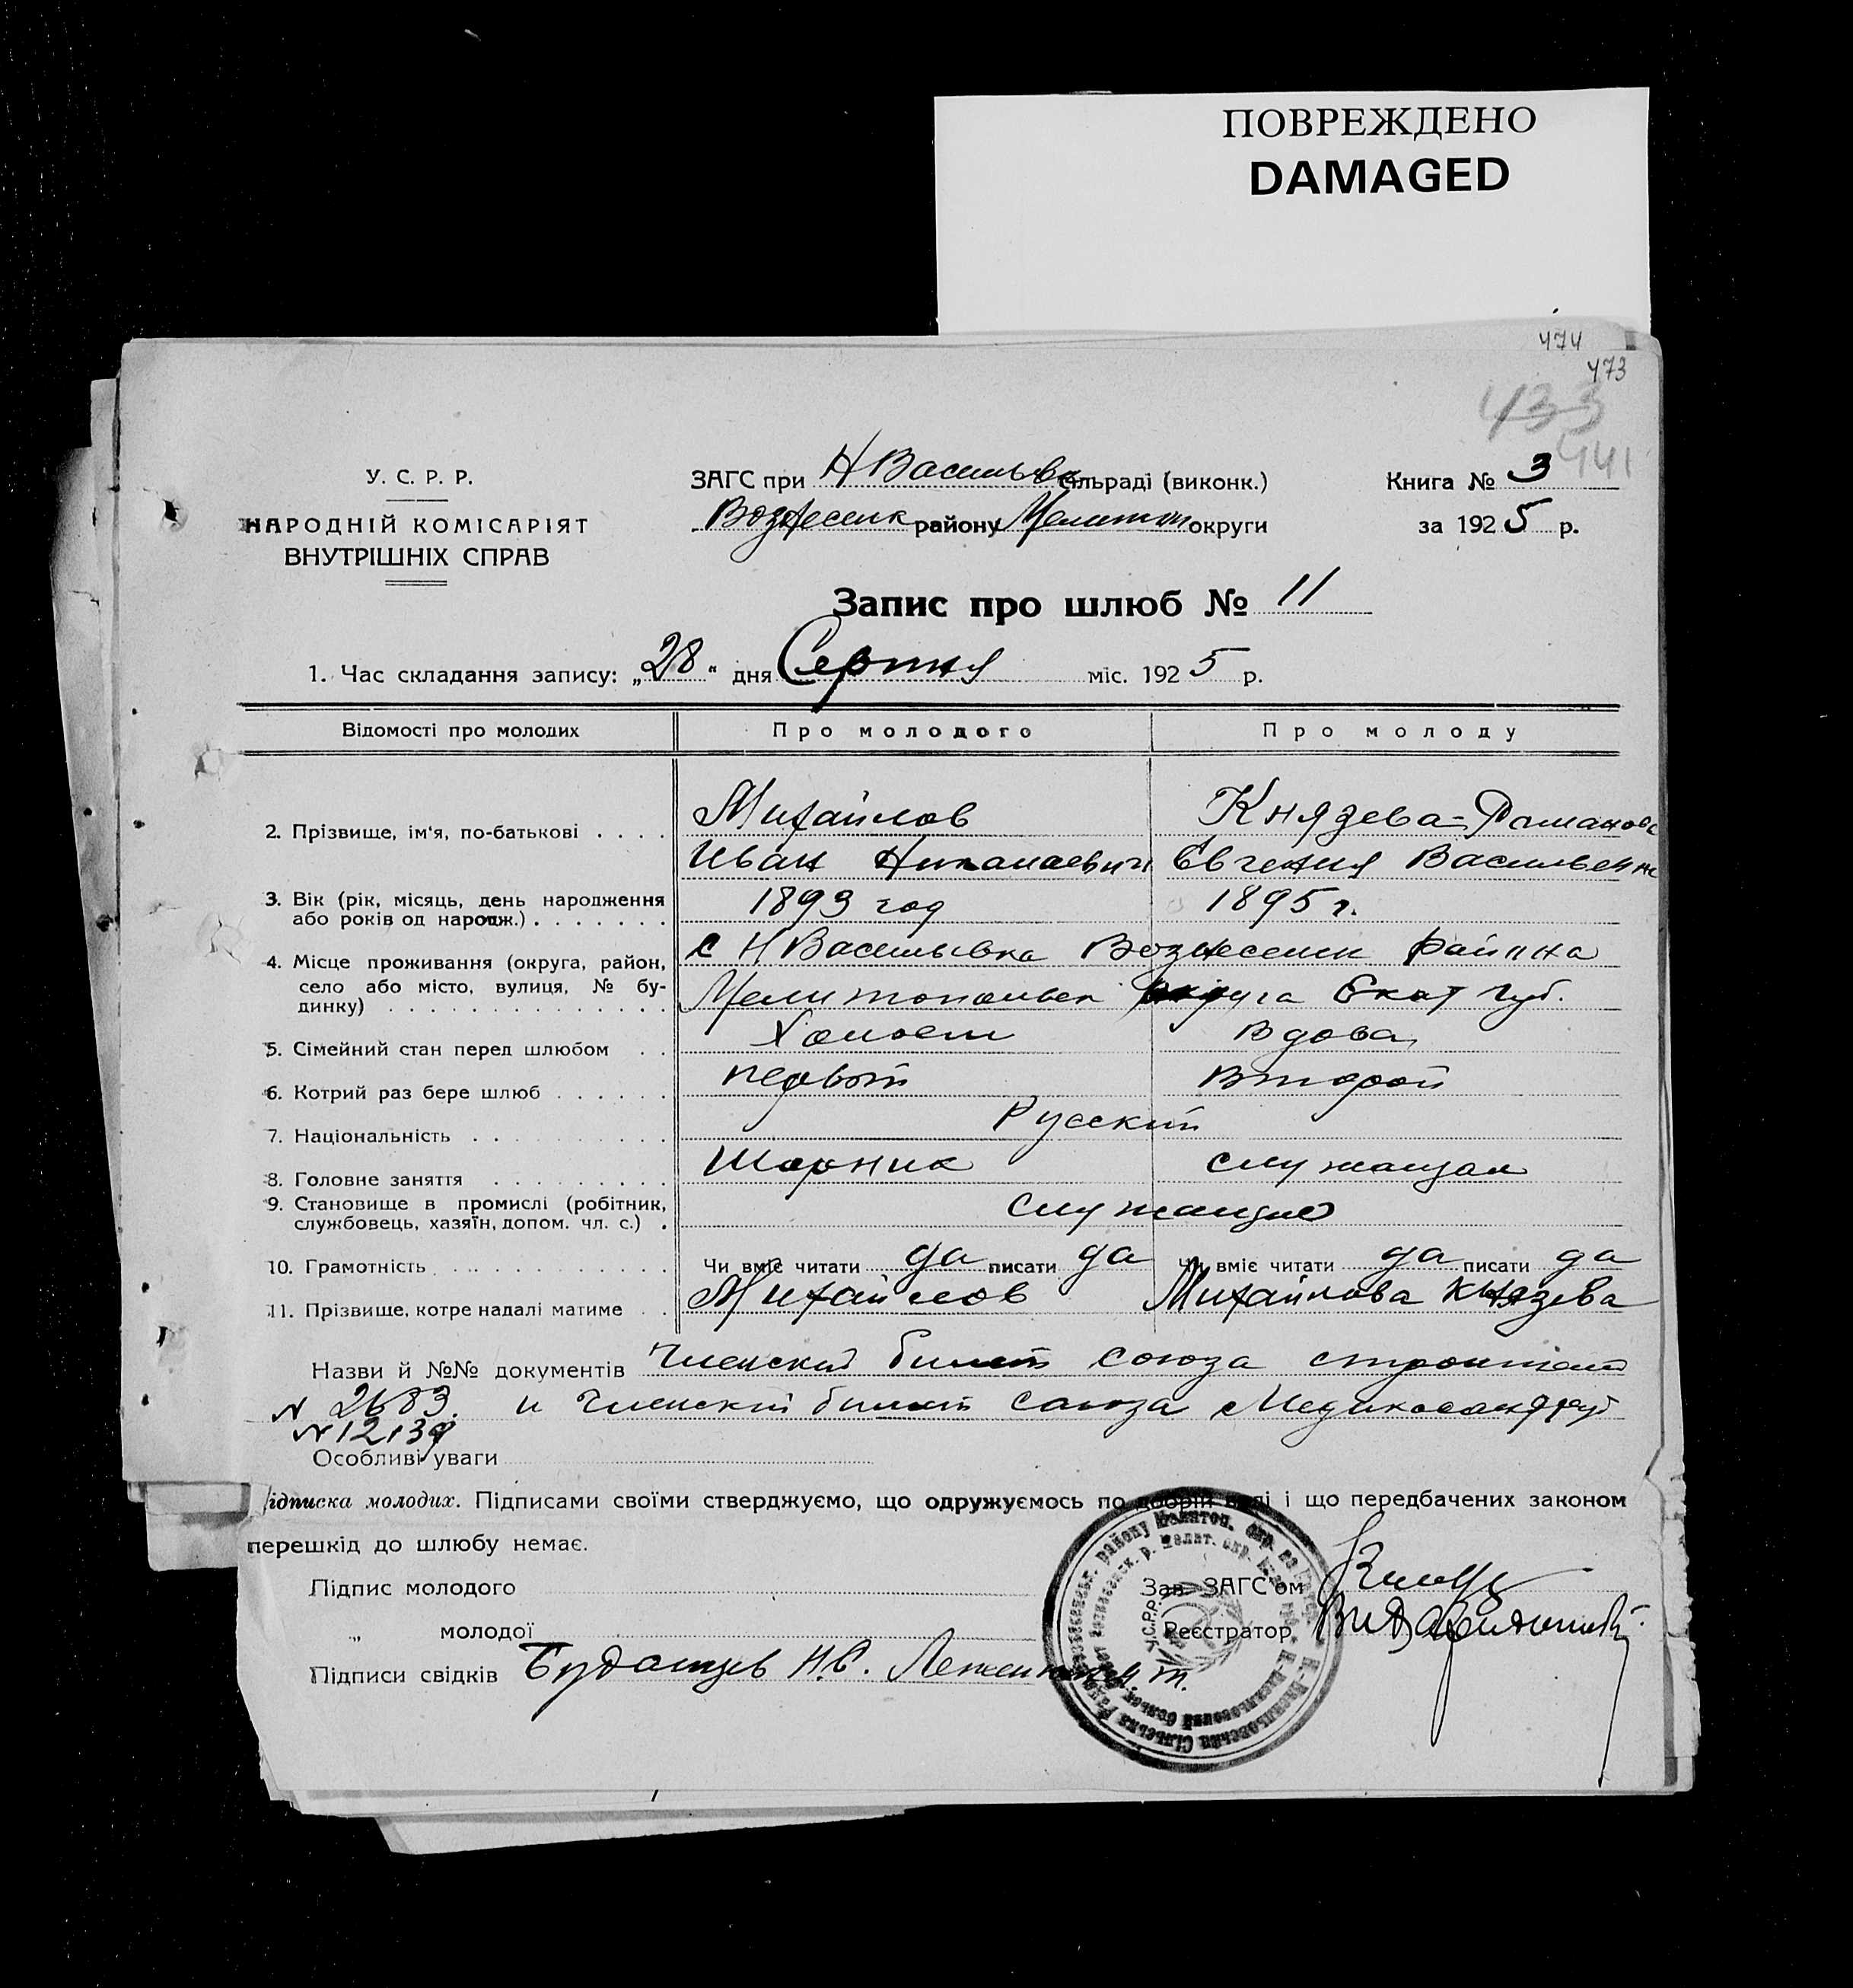 ПОВРЕЖДЕНО
DAMAGED
474
473
433
441
У. С. Р. Р.
НАРОДНІЙ КОМІСАРІЯТ
ВНУТРІШНІХ СПРАВ
ЗАГС при Н Васильевк сільраді (виконк.)
Вознесенк району Мелитоп округи
Книга № 3
за 1925 р.
Запис про шлюб № 11
1. Час складання запису: „28“ дня Серпня міс. 1925 р.
Відомості про молодих Про молодого Про молоду
2. Прізвище, ім'я, по-батькові Михайлов Князева-Романова
Иван Николаевич Евгения Васильевна
3. Вік (рік, місяць, день народження або років од народж.) 1893 год 1895 г.
4. Місце проживання (округа, район, село або місто, вулиця, № будинку) с Н Васильевка Вознесенк района
Мелитопольск округа Екат губ.
5. Сімейний стан перед шлюбом Холост Вдова
6. Котрий раз бере шлюб первый второй
7. Національність Русский
8. Головне заняття Шорник служащая
9. Становище в промислі (робітник, службовець, хазяїн, допом. чл. с.) служащие
10. Грамотність Чи вміє читати да писати да Чи вміє читати да писати да
11. Прізвище, котре надалі матиме Михайлов Михайлова Князева
Назви й №№ документів Членский билет союза строител
N 2683. и Членский билет союза Медикосантруд
N 12139
Особливі уваги
Підписка молодих. Підписами своїми стверджуємо, що одружуємось по добрій волі і що передбачених законом
перешкід до шлюбу немає.
Підпис молодого
„ молодої
Підписи свідків Бударцев Н.С.
Зав. ЗАГС'ом
Реєстратор
У.С.Р.Р.